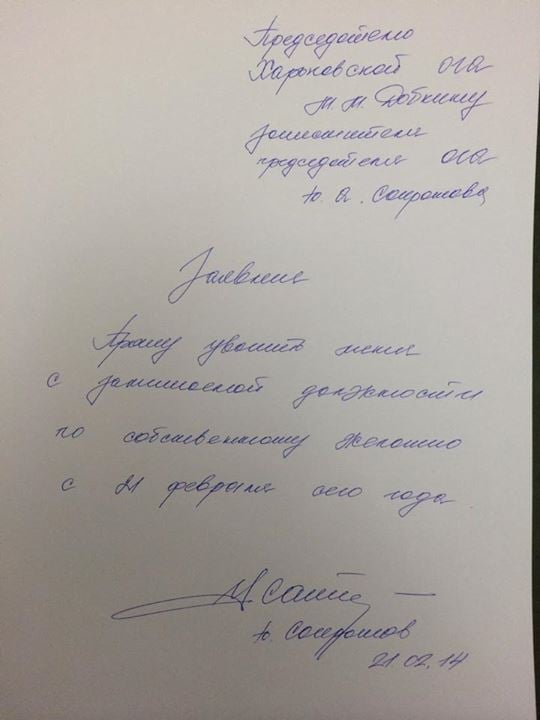 Председателю
Харьковской ОГА
М. М. Добкину
заместителя
председателя ОГА
Ю. А. Сапронова
Заявление
Прошу уволить меня
с занимаемой должности
по собственному желанию
с 21 февраля сего года
Ю. Сапронов
21.02.14